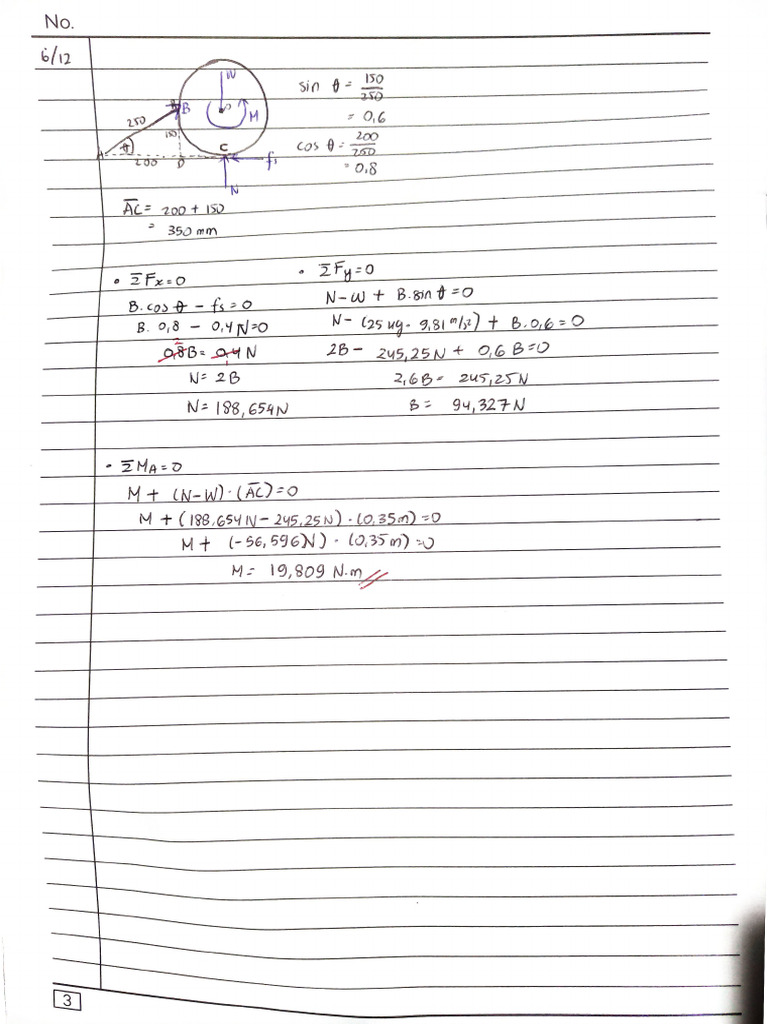 No.
6/12
W
B
M
250
150
θ
A
200
D
C
fs
N
sin θ = 150/250
= 0,6
cos θ = 200/250
= 0,8
AC = 200 + 150
= 350 mm
• ΣFx=0
B. cos θ - fs = 0
B. 0,8 - 0,4N=0
0,8B = 0,4N
N = 2B
N = 188,654N
• ΣFy=0
N-W + B.sin θ = 0
N - (25 kg - 9,81 m/s²) + B.0,6 = 0
2B - 245,25N + 0,6B=0
2,6B = 245,25N
B = 94,327 N
• ΣMA=0
M + (N-W)·(AC)=0
M + (188,654N - 245,25N) · (0,35m)=0
M + (-56,596N) · (0,35m)=0
M = 19,809 N.m
3